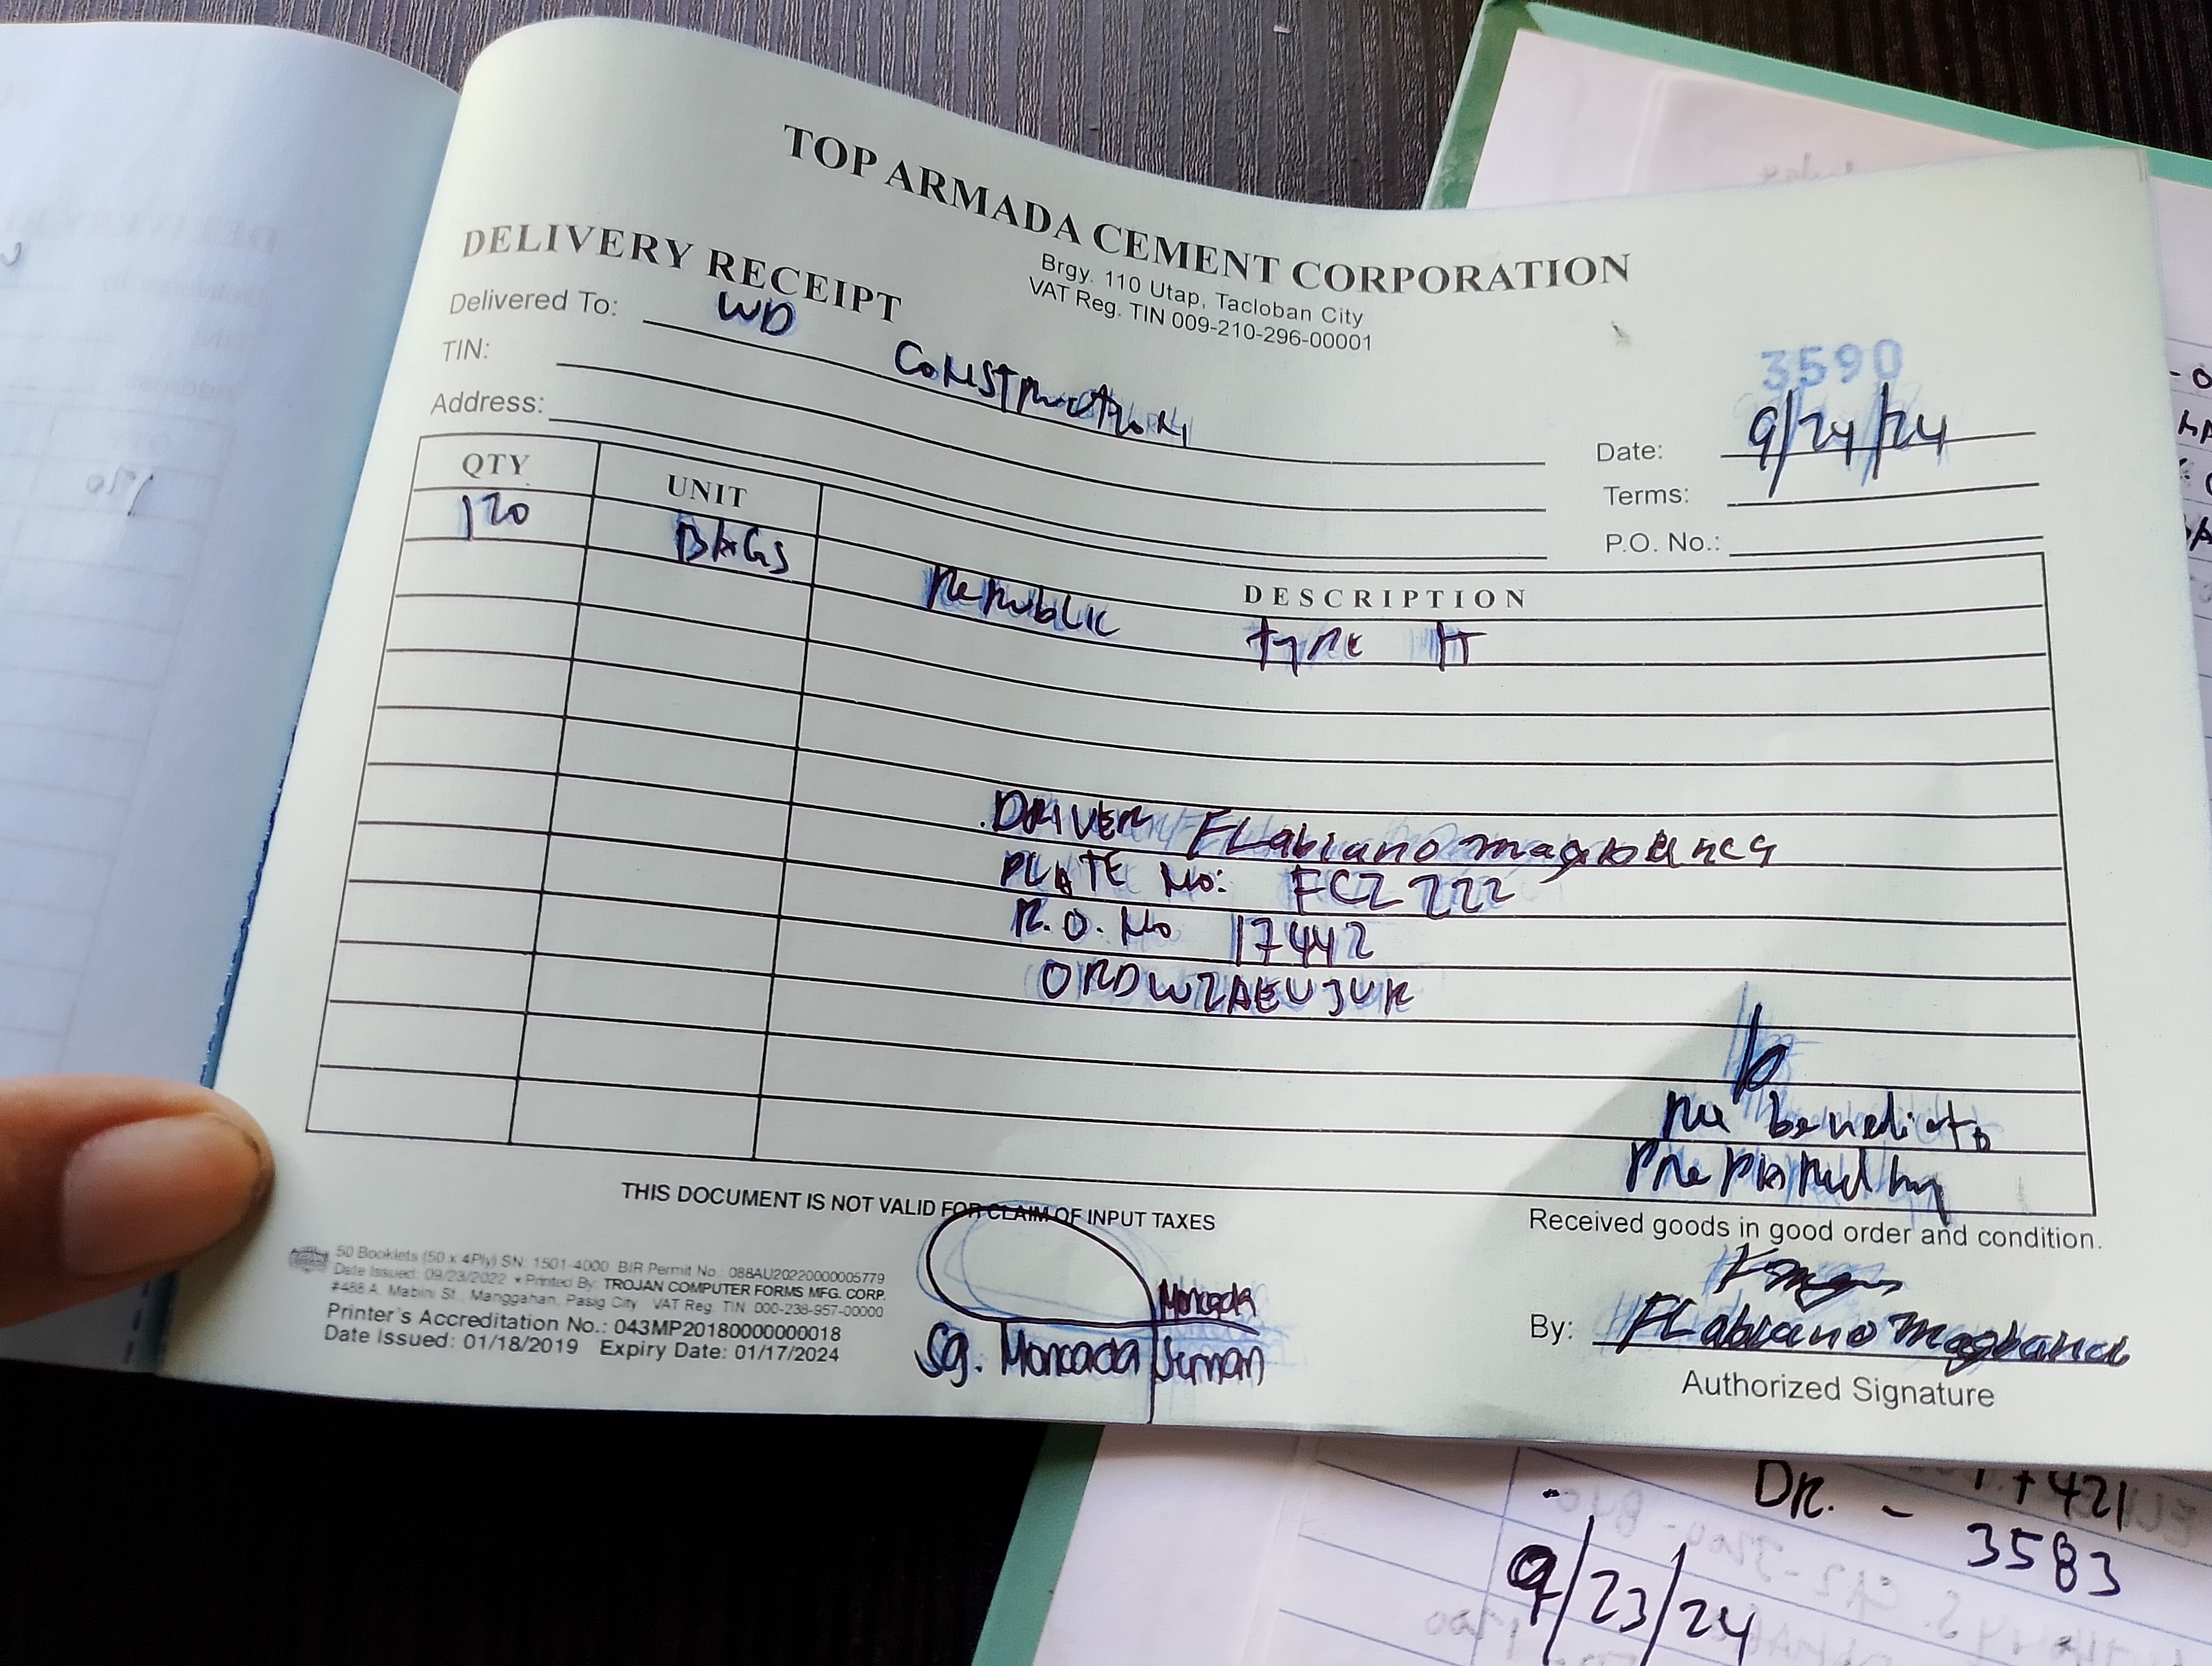 TOP ARMADA CEMENT CORPORATION
Brgy. 110 Utap, Tacloban City
VAT Reg. TIN 009-210-296-00001
DELIVERY RECEIPT
3590
Delivered To: WD Construction
TIN:
Address:
Date: 9/24/24
Terms:
P.O. No.:
QTY UNIT DESCRIPTION
120 BAGS Republic type
DRIVER FLabiano
PLATE No: FCZ 222
R.O. No 17442
ORDWZAEUJUR
benedicto
Prepared by
THIS DOCUMENT IS NOT VALID FOR CLAIM OF INPUT TAXES
Received goods in good order and condition.
50 Booklets (50 x 4Ply) SN: 1501-4000 BIR Permit No.: 088AU20220000005779
Date Issued: 09/23/2022 • Printed By: TROJAN COMPUTER FORMS MFG. CORP.
#488 A. Mabini St., Manggahan, Pasig City VAT Reg. TIN 000-238-957-00000
Printer's Accreditation No.: 043MP20180000000018
Date Issued: 01/18/2019 Expiry Date: 01/17/2024
Moncada
Sg. Moncada
By: FLabiano Magbanua
Authorized Signature
DR. - 17421
3583
9/23/24